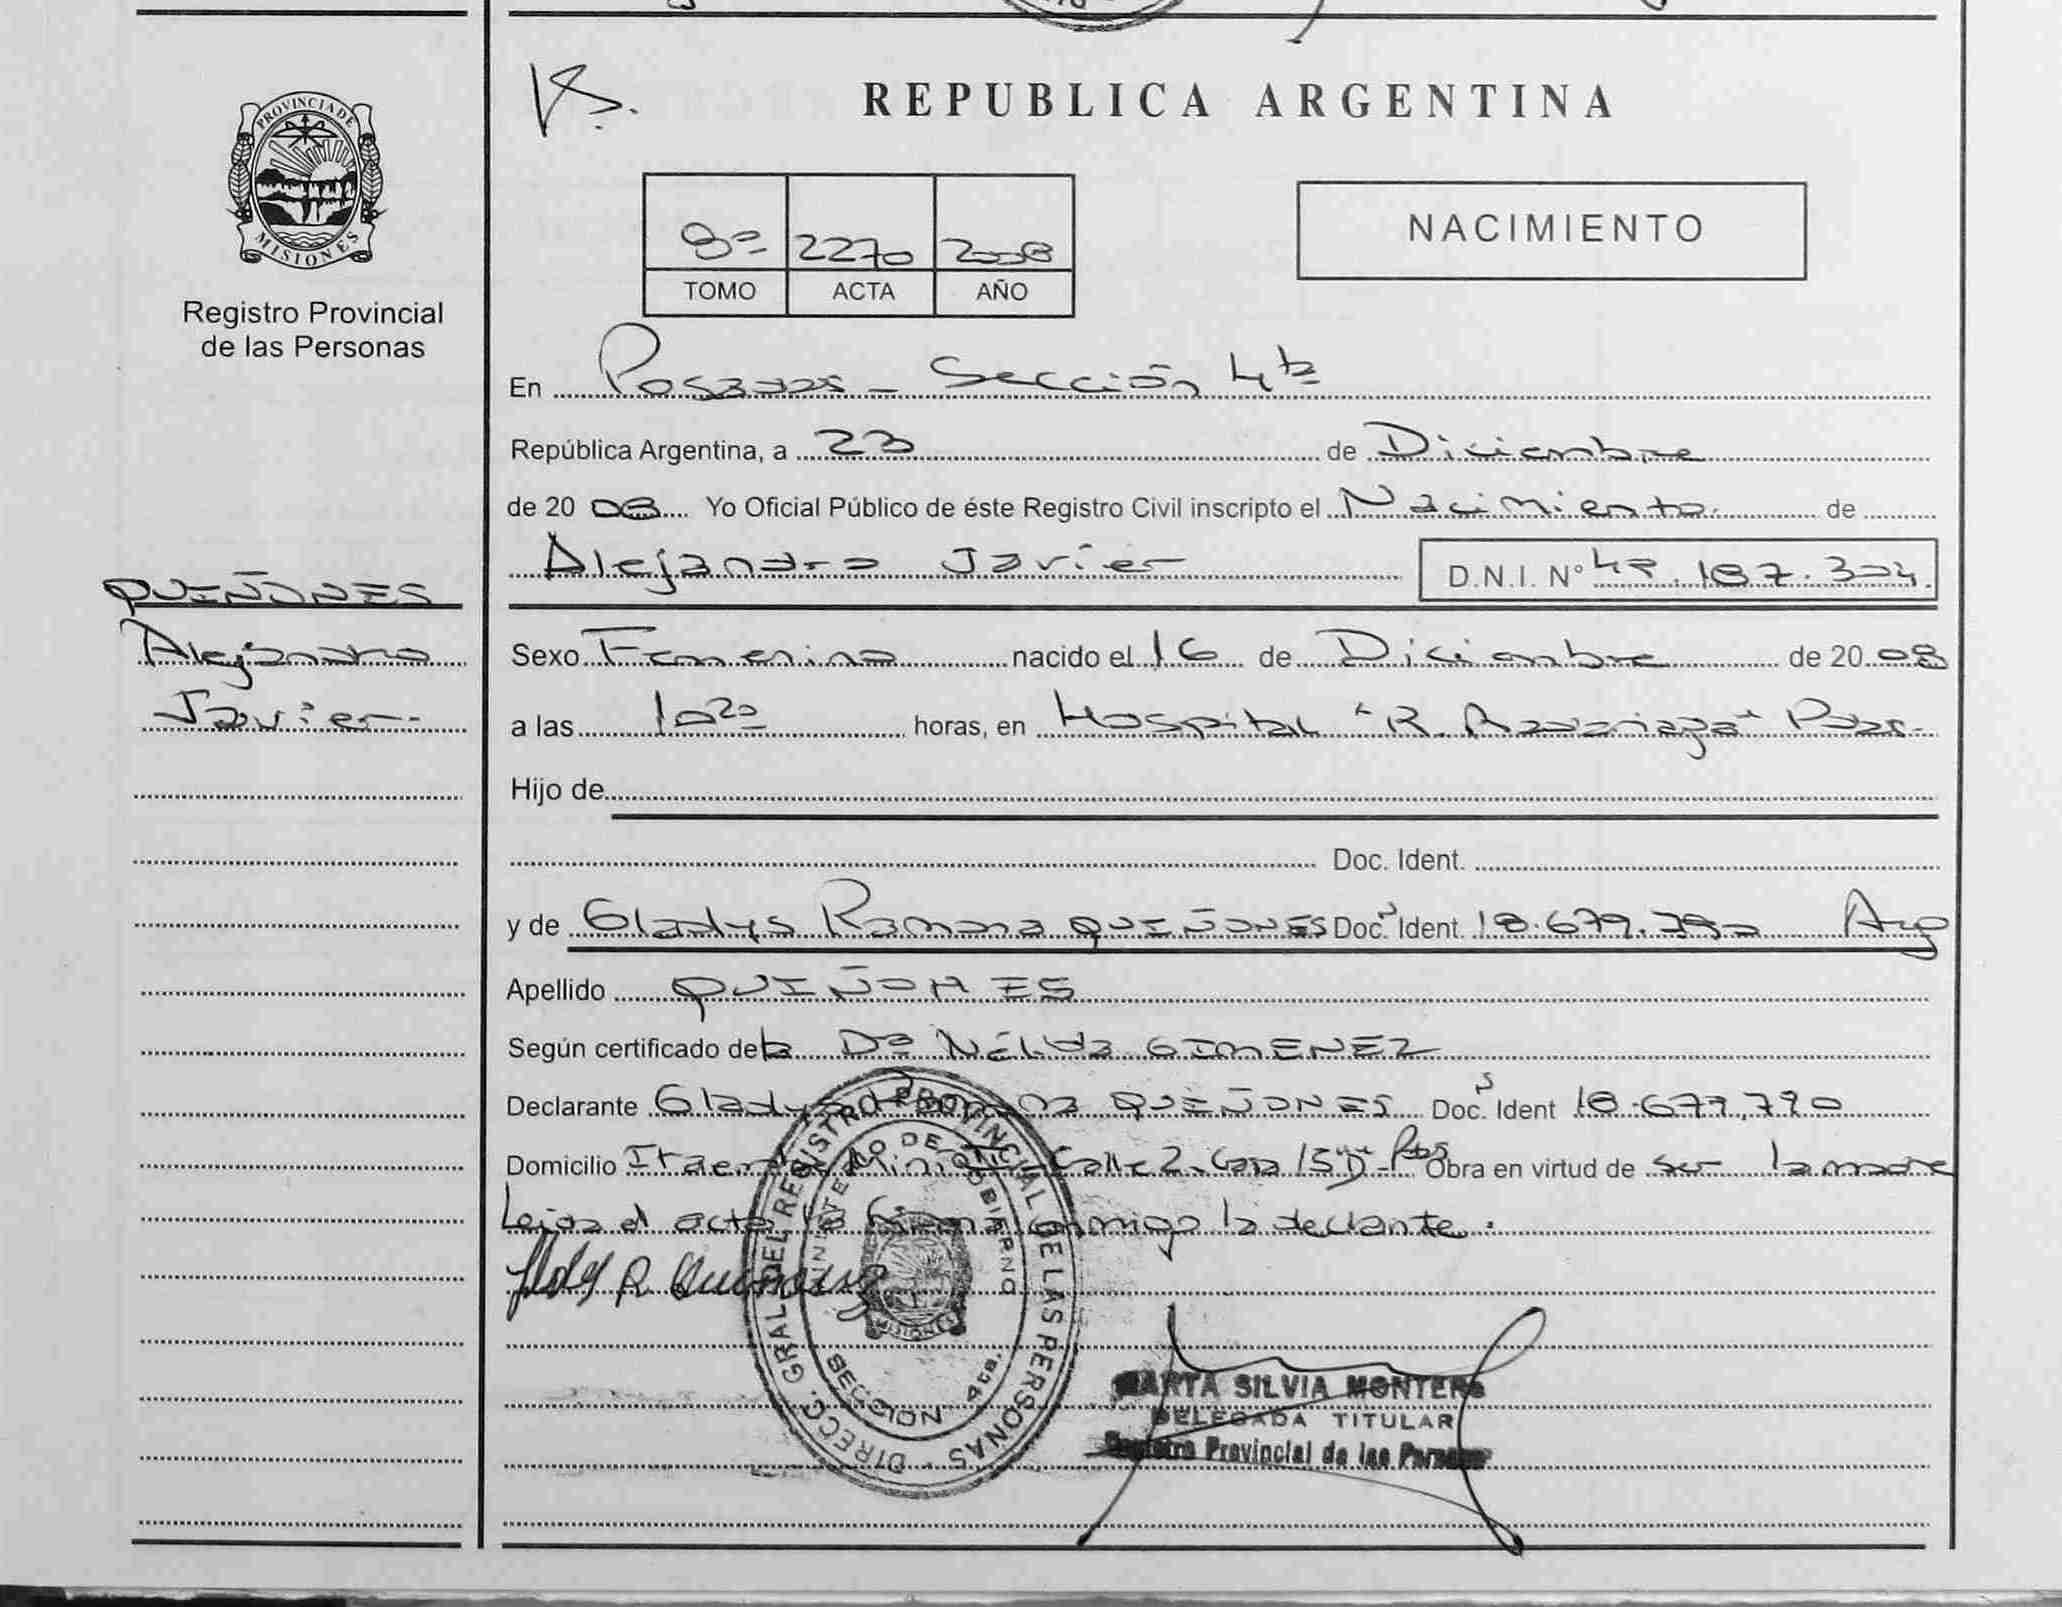 REPUBLICA ARGENTINA
PROVINCIA DE
MISIONES
Registro Provincial
de las Personas
8º 2270 2008
TOMO ACTA AÑO
NACIMIENTO
En Posadas - Sección 4ta
República Argentina, a 23 de Diciembre
de 20 08 Yo Oficial Público de éste Registro Civil inscripto el Nacimiento de
Alejandro Javier D.N.I. Nº 49.187.304.
QUIÑONES
Alejandro
Javier.
Sexo Femenino nacido el 16 de Diciembre de 20 08
a las 10 20 horas, en Hospital "R. Madariaga" Pdas.
Hijo de
Doc. Ident.
y de Gladys Ramona QUIÑONES Doc. Ident. 18.679.790 Arg
Apellido QUIÑONES
Según certificado de la Dra Nélida GIMENEZ
Declarante Gladys Ramona QUIÑONES Doc. Ident 18.679.790
Domicilio Calle 2. Casa 15 Obra en virtud de ser la madre
Leida el acta la firma conmigo la declante.
DIRECC. GRAL. DEL REGISTRO PROVINCIAL DE LAS PERSONAS
MINISTERIO DE GOBIERNO
MISIONES
SECCION 4ta.
MARTA SILVIA MONTERO
DELEGADA TITULAR
Registro Provincial de las Personas